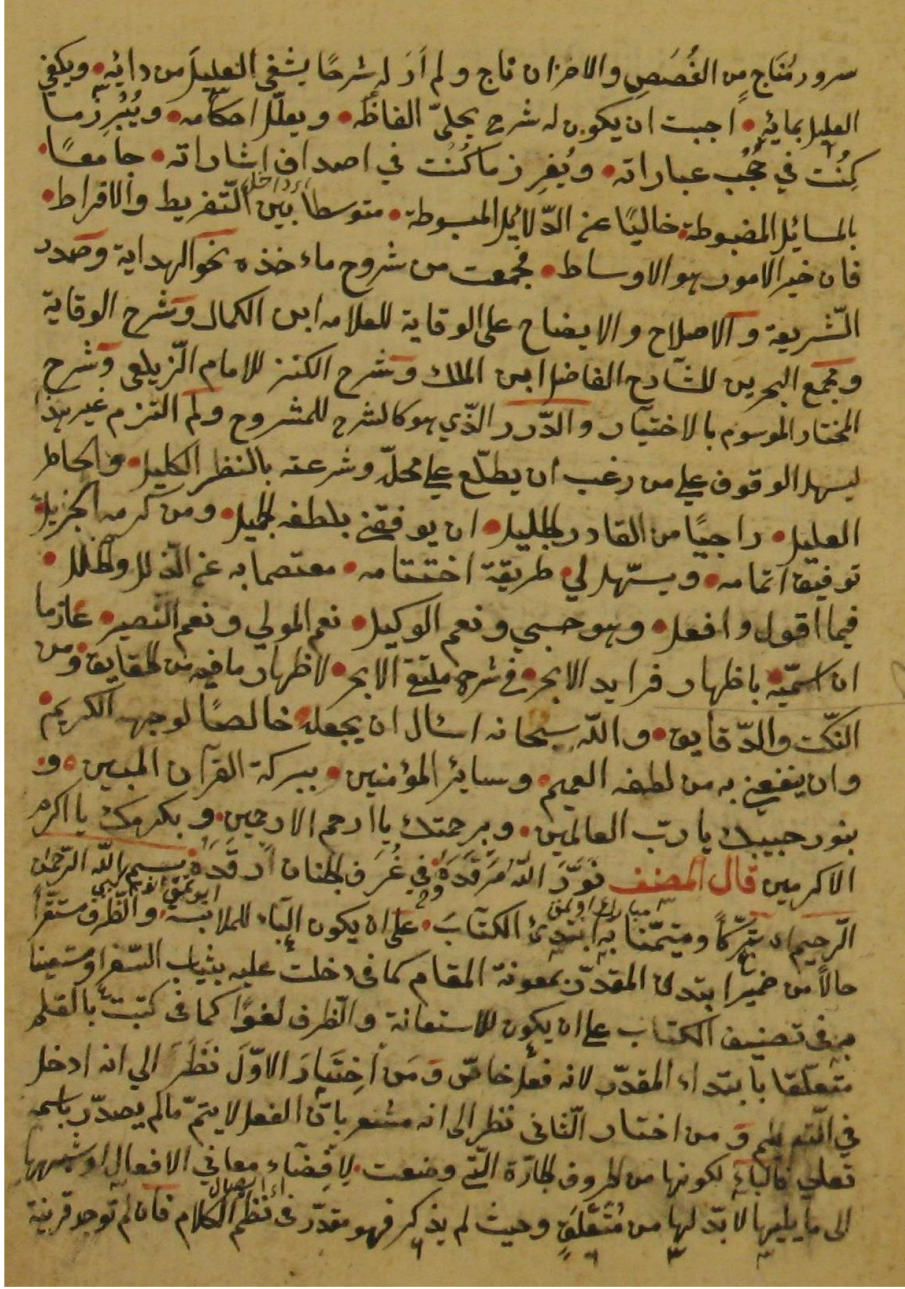 سرور مُنَاج من الغُصَصِ والاحزان ناج ولم أرَ له شرحًا يشفي العليلَ من دائه • ويكفي
الغليل بمائه • احببت ان يكون له شرح يحلّي الفاظه • ويعلّل احكامه • ويُبْرِزُ ما
كِنُتْ في حُجُب عباراته • ويُفرِز ما كُنُت في اصداف اشاراته • جامعًا •
بالمسائل المضبوطة • خاليًا عن الدّلائل المبسوطة • متوسطا بين التّفريط والافراط •
فان خير الامور هو الاوساط • فجمعت من شروح ماءخذه نحو الهداية وصدر
الشّريعة والاصلاح والايضاح على الوقاية للعلامه ابن الكمال وشرح الوقاية
ومجمع البحرين للشارح الفاضل ابن الملك وشرح الكنز للامام الزيلعي وشرح
المختار الموسوم بالاختيار والدّرر الذّي هو كالشرح للمشروح ولم التزم غير هذا
ليسهل الوقوف على من رغب ان يطلّع على محلّه وشرعته بالنظر الكليل • والخاطر
العليل • راجيًا من القادر الجليل • ان يوفقني بلطفه الجميل • ومن كرمه الجزيل
توفيق اتمامه • ويسّهل لي طريقة اختتامه • معتصما به عن الذلل والخلل •
فيما اقول وافعل • وهو حسبي ونعم الوكيل • نعم المولي ونعم النّصير • عازما
ان اسمّيه • باظهار فرايد الابحر • في شرح ملتقي الابحر • لاظهار ما فيه من الحقايق • ومن
النكّت والدّقايق • والله سبحانه اسال ان يجعله خالصًا لوجهه الكريم •
وان ينفعني به من لطفه العميم • وسائر المؤمنين • ببركة القرآن المبين • و •
بنور حبيبك يا رب العالمين • وبرحمتك يا ارحم الارحمين • وبكرمك يا اكرم
الاكرمين قال المصنف نوّرَ الله مَرقَدَهُ • وفي غُرَفِ الجنان ارقَدَهُ • بسم الله الرّحمن
الرّحيم اي تبرّكًا ومتيمّنا به ابتدئ الكتابَ • على ان يكون الباء للملابسة • والظّرف مستقّرا
حالًا من ضمير ابتدئ المقدّر بمعونة المقام كما في دخلت عليه بثياب السّفر او مستعينا
به في تصنيف الكتاب على ان يكون للاستعانة والظّرف لغوًا كما في كتبت بالقلم
متعلّقا بابتداء المقدّر لانه فعل خاصّ ومن اختيارَ الاوّلَ نَظَرَ الي انه ادخل
في التّعظيم ومن اختار الثّاني نظر الى انه مشعر بانّ الفعل لا يتمّ ما لم يصدّر باسمه
تعلي فالباء لكونها من الحروف الجارّة التّي وضعت لافضاء معاني الافعال او شبهها
الى ما يليها لا بدّ لها من مُتَعَلَّقٍ وحيث لم يذكر فهو مقدّر في نظم الكلام فان لم توجد قرينة